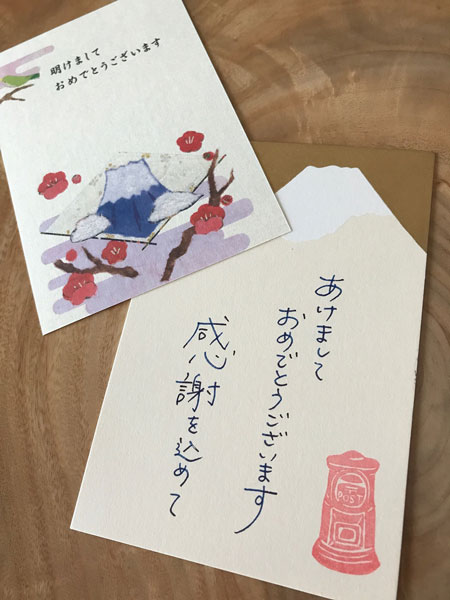 明けまして
おめでとうございます
あけまして
おめでとうございます
感謝を込めて
POST